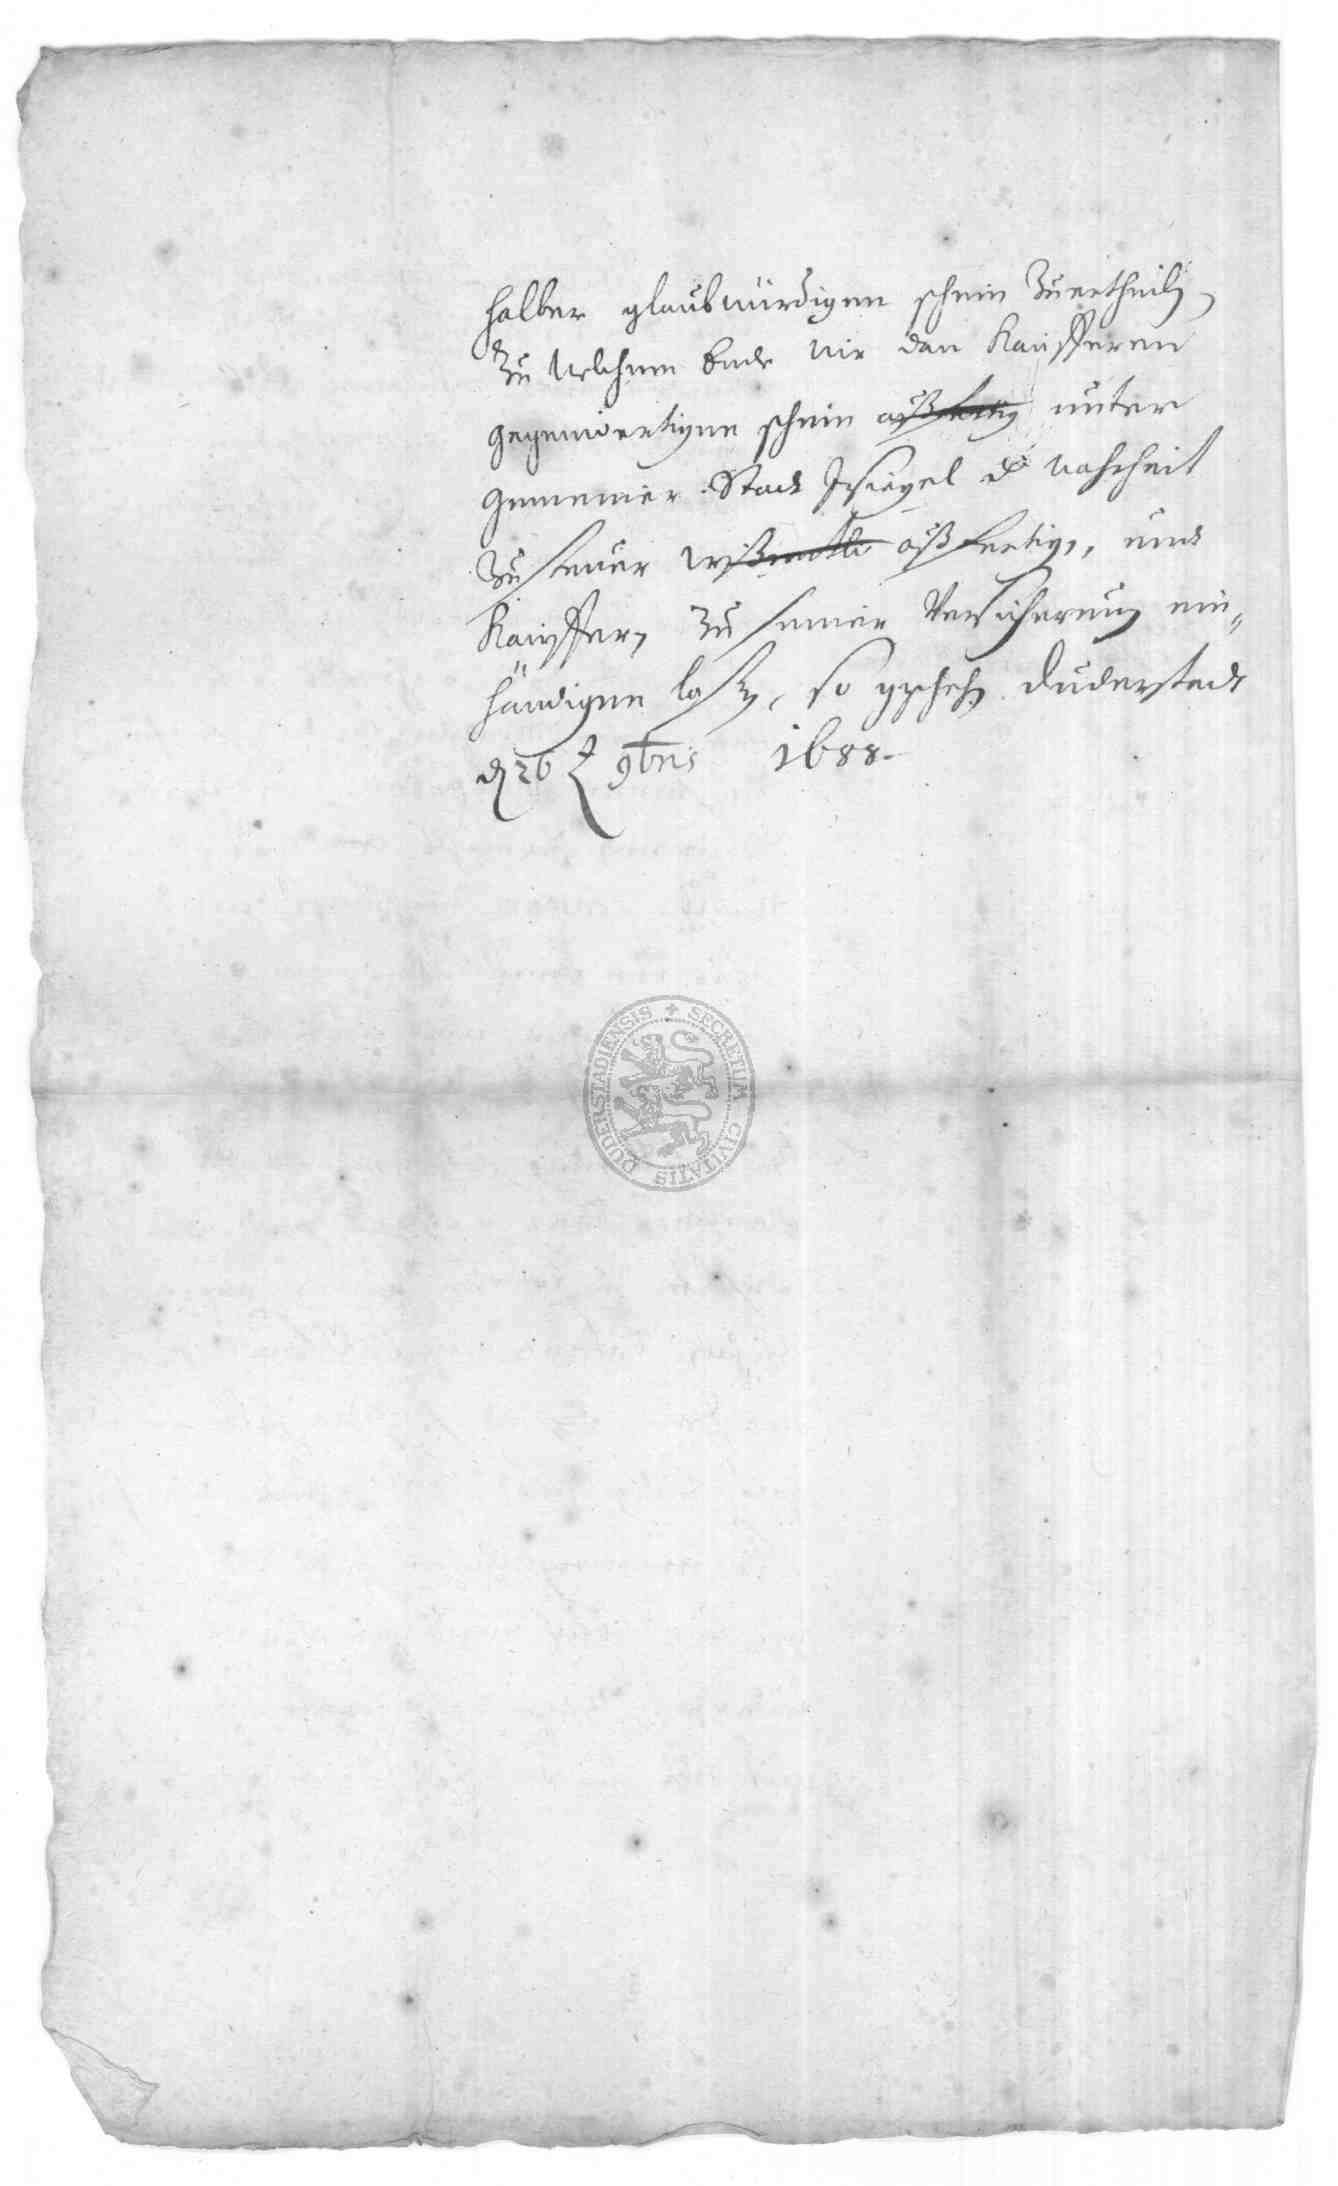 halber glaubwürdigen schein zuertheilen,
zu welchem Ende wir dan Kaüfferen
gegenwertigen schein außfertig unter
gemeiner Stadt Insiegel der warheit
zu steuer außfertigen, und
Kaüffern zu seiner Versicherung ein-
händigen laßen, so geschehen Duderstadt
den 26 9bris 1688.
SECRETUM CIVITATIS DUDERSTADIENSIS